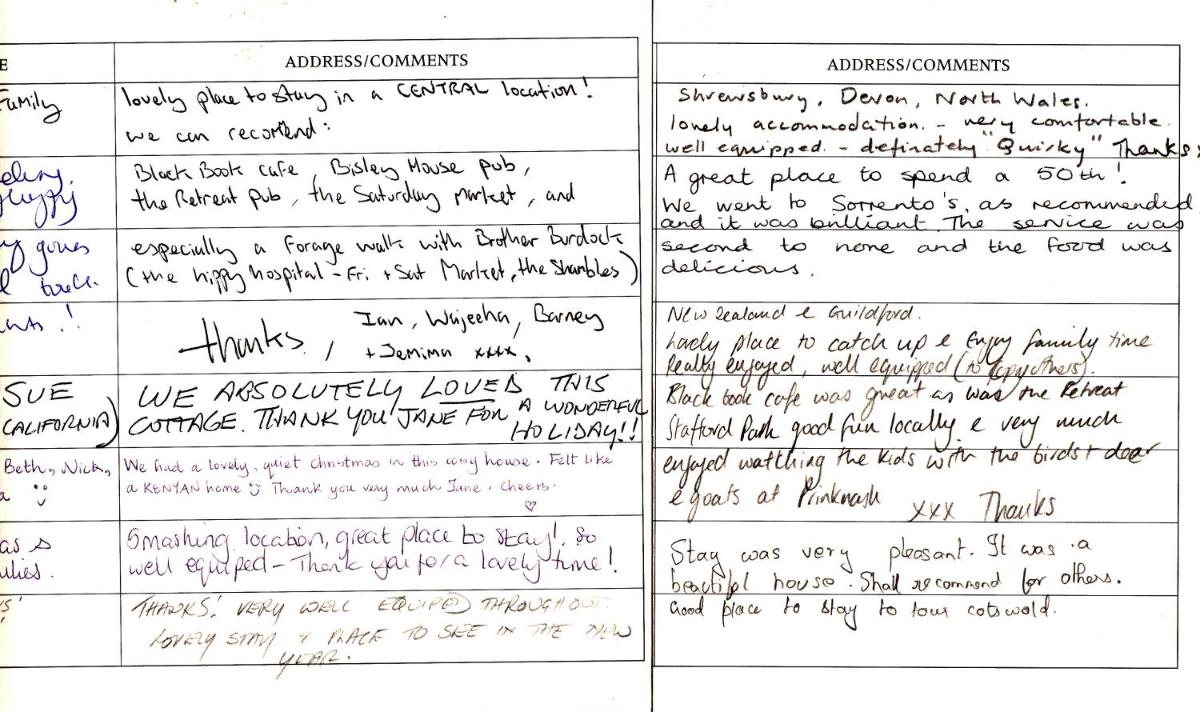 E
ADDRESS/COMMENTS
Family
lovely place to stay in a CENTRAL location!
we can recomend:
Black Book cafe, Bisley House pub,
the Retreat pub, the Saturday market, and
especially a Forage walk with Brother Burdock
(the hippy hospital - Fri + Sat Market, the Shambles)
thanks, Ian, Wajeeha, Barney
+ Jemima xxx.
SUE
CALIFORNIA)
WE ABSOLUTELY LOVED THIS
COTTAGE. THANK YOU JANE FOR A WONDERFUL
HOLIDAY!!
Beth, Nick,
a
We had a lovely, quiet christmas in this cosy house. Felt like
a KENYAN home Thank you very much Jane. Cheers.
as
Smashing location, great place to stay! So
well equiped - Thank you for a lovely time!
THANKS! VERY WELL EQUIPED THROUGHOUT.
LOVELY STAY & PLACE TO SEE IN THE NEW
YEAR.
ADDRESS/COMMENTS
Shrewsbury, Devon, North Wales.
lovely accommodation. - very comfortable.
well equipped. - definately "Quirky" Thanks
A great place to spend a 50th!
We went to Sorrento's, as recommended
and it was brilliant. The service was
second to none and the food was
delicious.
New Zealand & Guildford.
Lovely place to catch up & Enjoy family time
Really enjoyed, well equipped (to copy others).
Black book cafe was great as was the Retreat
Stafford Park good fun locally & very much
enjoyed watching the kids with the birds + deer
& goats at Prinknash xxx Thanks
Stay was very pleasant. It was a
beautiful house. Shall recommend for others.
Good place to stay to tour cotswold.